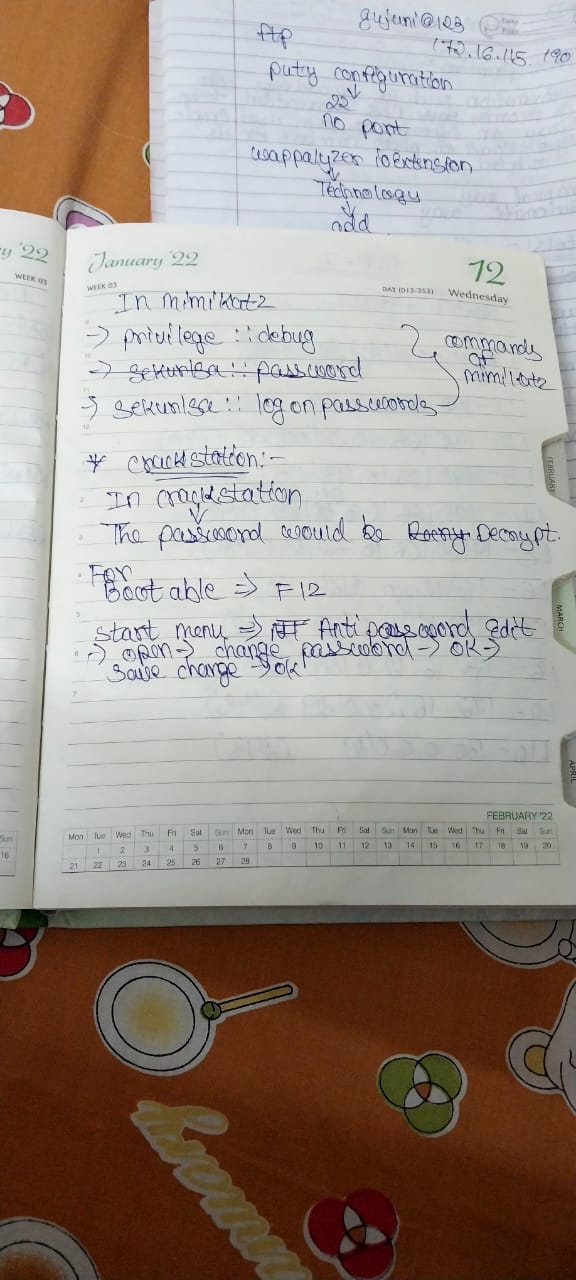 gujuni@123
ftp
172.16.115.190
puty configuration
22
no port
wappalyzer io extension
Technology
add
y '22
WEEK 03
January '22
12
WEEK 03
DAY (012-353) Wednesday
In mimikatz
→ privilege :: debug
→ sekurlsa :: password
→ sekurlsa :: logon passwords
commands
of
mimikatz
* crackstation:-
In crackstation
The password would be Decrypt.
For
Boot able ⇒ F12
start menu ⇒ Anti password edit
→ open → change password → OK →
save change → OK
FEBRUARY
MARCH
APRIL
FEBRUARY '22
Mon Tue Wed Thu Fri Sat Sun Mon Tue Wed Thu Fri Sat Sun Mon Tue Wed Thu Fri Sat Sun
1 2 3 4 5 6 7 8 9 10 11 12 13 14 15 16 17 18 19 20
21 22 23 24 25 26 27 28
Sun
16